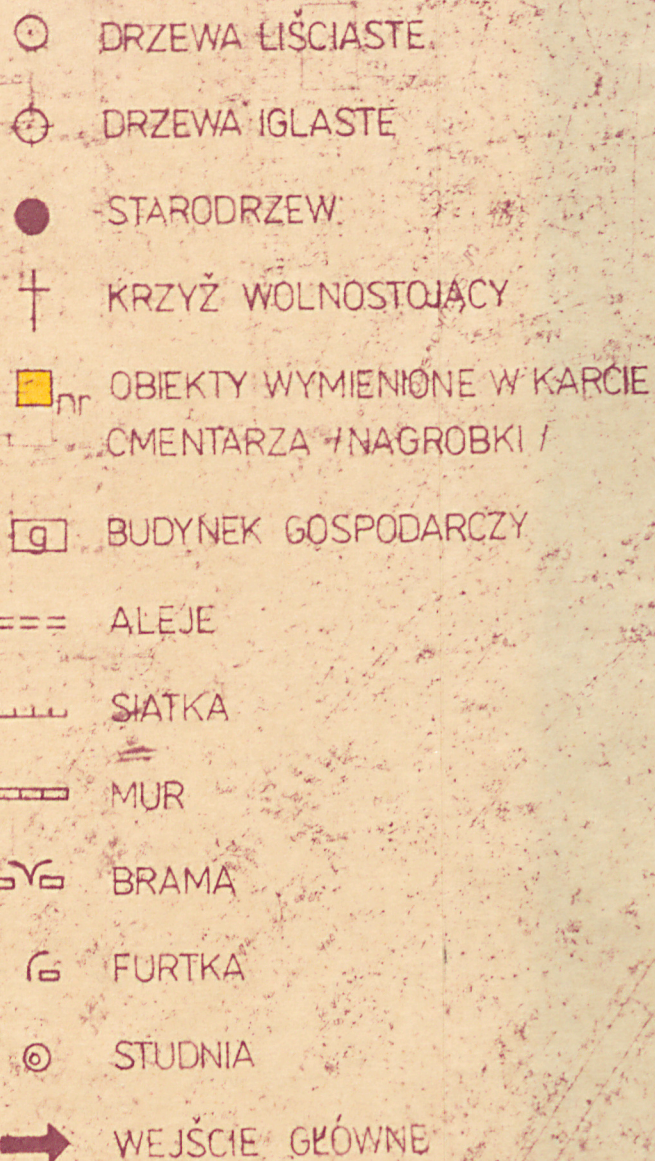 DRZEWA LIŚCIASTE
DRZEWA IGLASTE
STARODRZEW
KRZYŻ WOLNOSTOJĄCY
nr OBIEKTY WYMIENIONE W KARCIE
CMENTARZA /NAGROBKI /
g BUDYNEK GOSPODARCZY
ALEJE
SIATKA
MUR
BRAMA
FURTKA
STUDNIA
WEJŚCIE GŁÓWNE